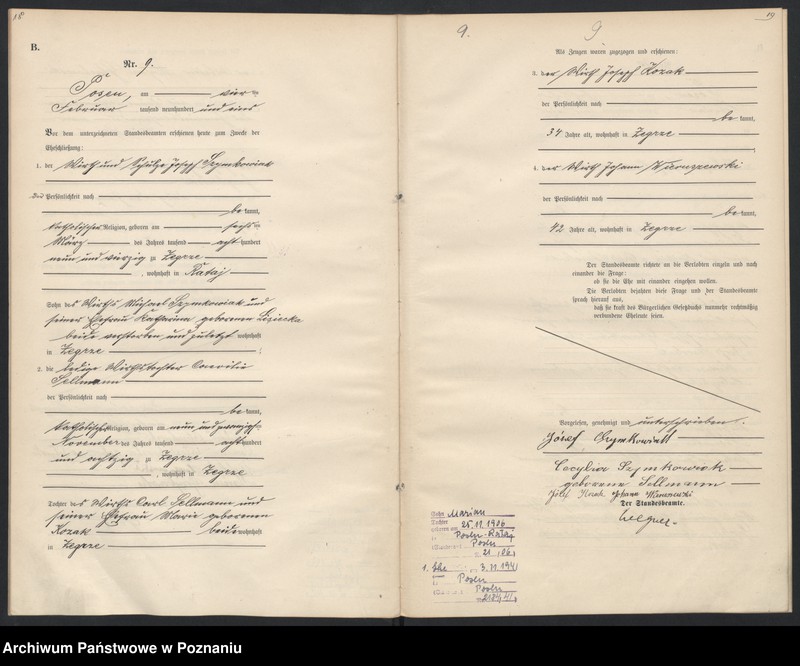 18
B.
Nr. 9.
Posen, am vier-
ten Februar tausend neunhundert und eins
Vor dem unterzeichneten Standesbeamten erschienen heute zum Zwecke der
Eheschließung:
1. der Wirth und Schulze Joseph Szymkowiak
der Persönlichkeit nach
be kannt,
katholischer Religion, geboren am sechs-
März des Jahres tausend acht hundert
neun und vierzig zu Zegrze
, wohnhaft in Rataj
Sohn des Wirths Michael Szymkowiak und
seiner Ehefrau Katharina geborenen
beide verstorben und zuletzt wohnhaft
in Zegrze ;
2. die ledige Wirthstochter Caecilie
Sellmann
der Persönlichkeit nach
be kannt,
katholischer Religion, geboren am neun und zwanzig-
November des Jahres tausend acht hundert
und achtzig zu Zegrze
, wohnhaft in Zegrze
Tochter des Wirths Carl Sellmann und
seiner Ehefrau Marie geborenen
Kozak beide wohnhaft
in Zegrze
9.
9
19
Als Zeugen waren zugezogen und erschienen:
3. der Wirth Joseph Kozak
der Persönlichkeit nach
be kannt,
34 Jahre alt, wohnhaft in Zegrze ;
4. der Wirth Johann
der Persönlichkeit nach
be kannt,
42 Jahre alt, wohnhaft in Zegrze
Der Standesbeamte richtete an die Verlobten einzeln und nach
einander die Frage:
ob sie die Ehe mit einander eingehen wollen.
Die Verlobten bejahten diese Frage und der Standesbeamte
sprach hierauf aus,
daß sie kraft des Bürgerlichen Gesetzbuchs nunmehr rechtmäßig
verbundene Eheleute seien.
Vorgelesen, genehmigt und unterschrieben.
Józef Szymkowiak
Cecylia Szymkowiak
geborene Sellmann
Der Standesbeamte.
Sohn Marian
Tochter
geboren am 25.11.1906
Posen-Rataj
Posen
21
1. Ehe 3.11.1941
Posen
Posen
Archiwum Państwowe w Poznaniu